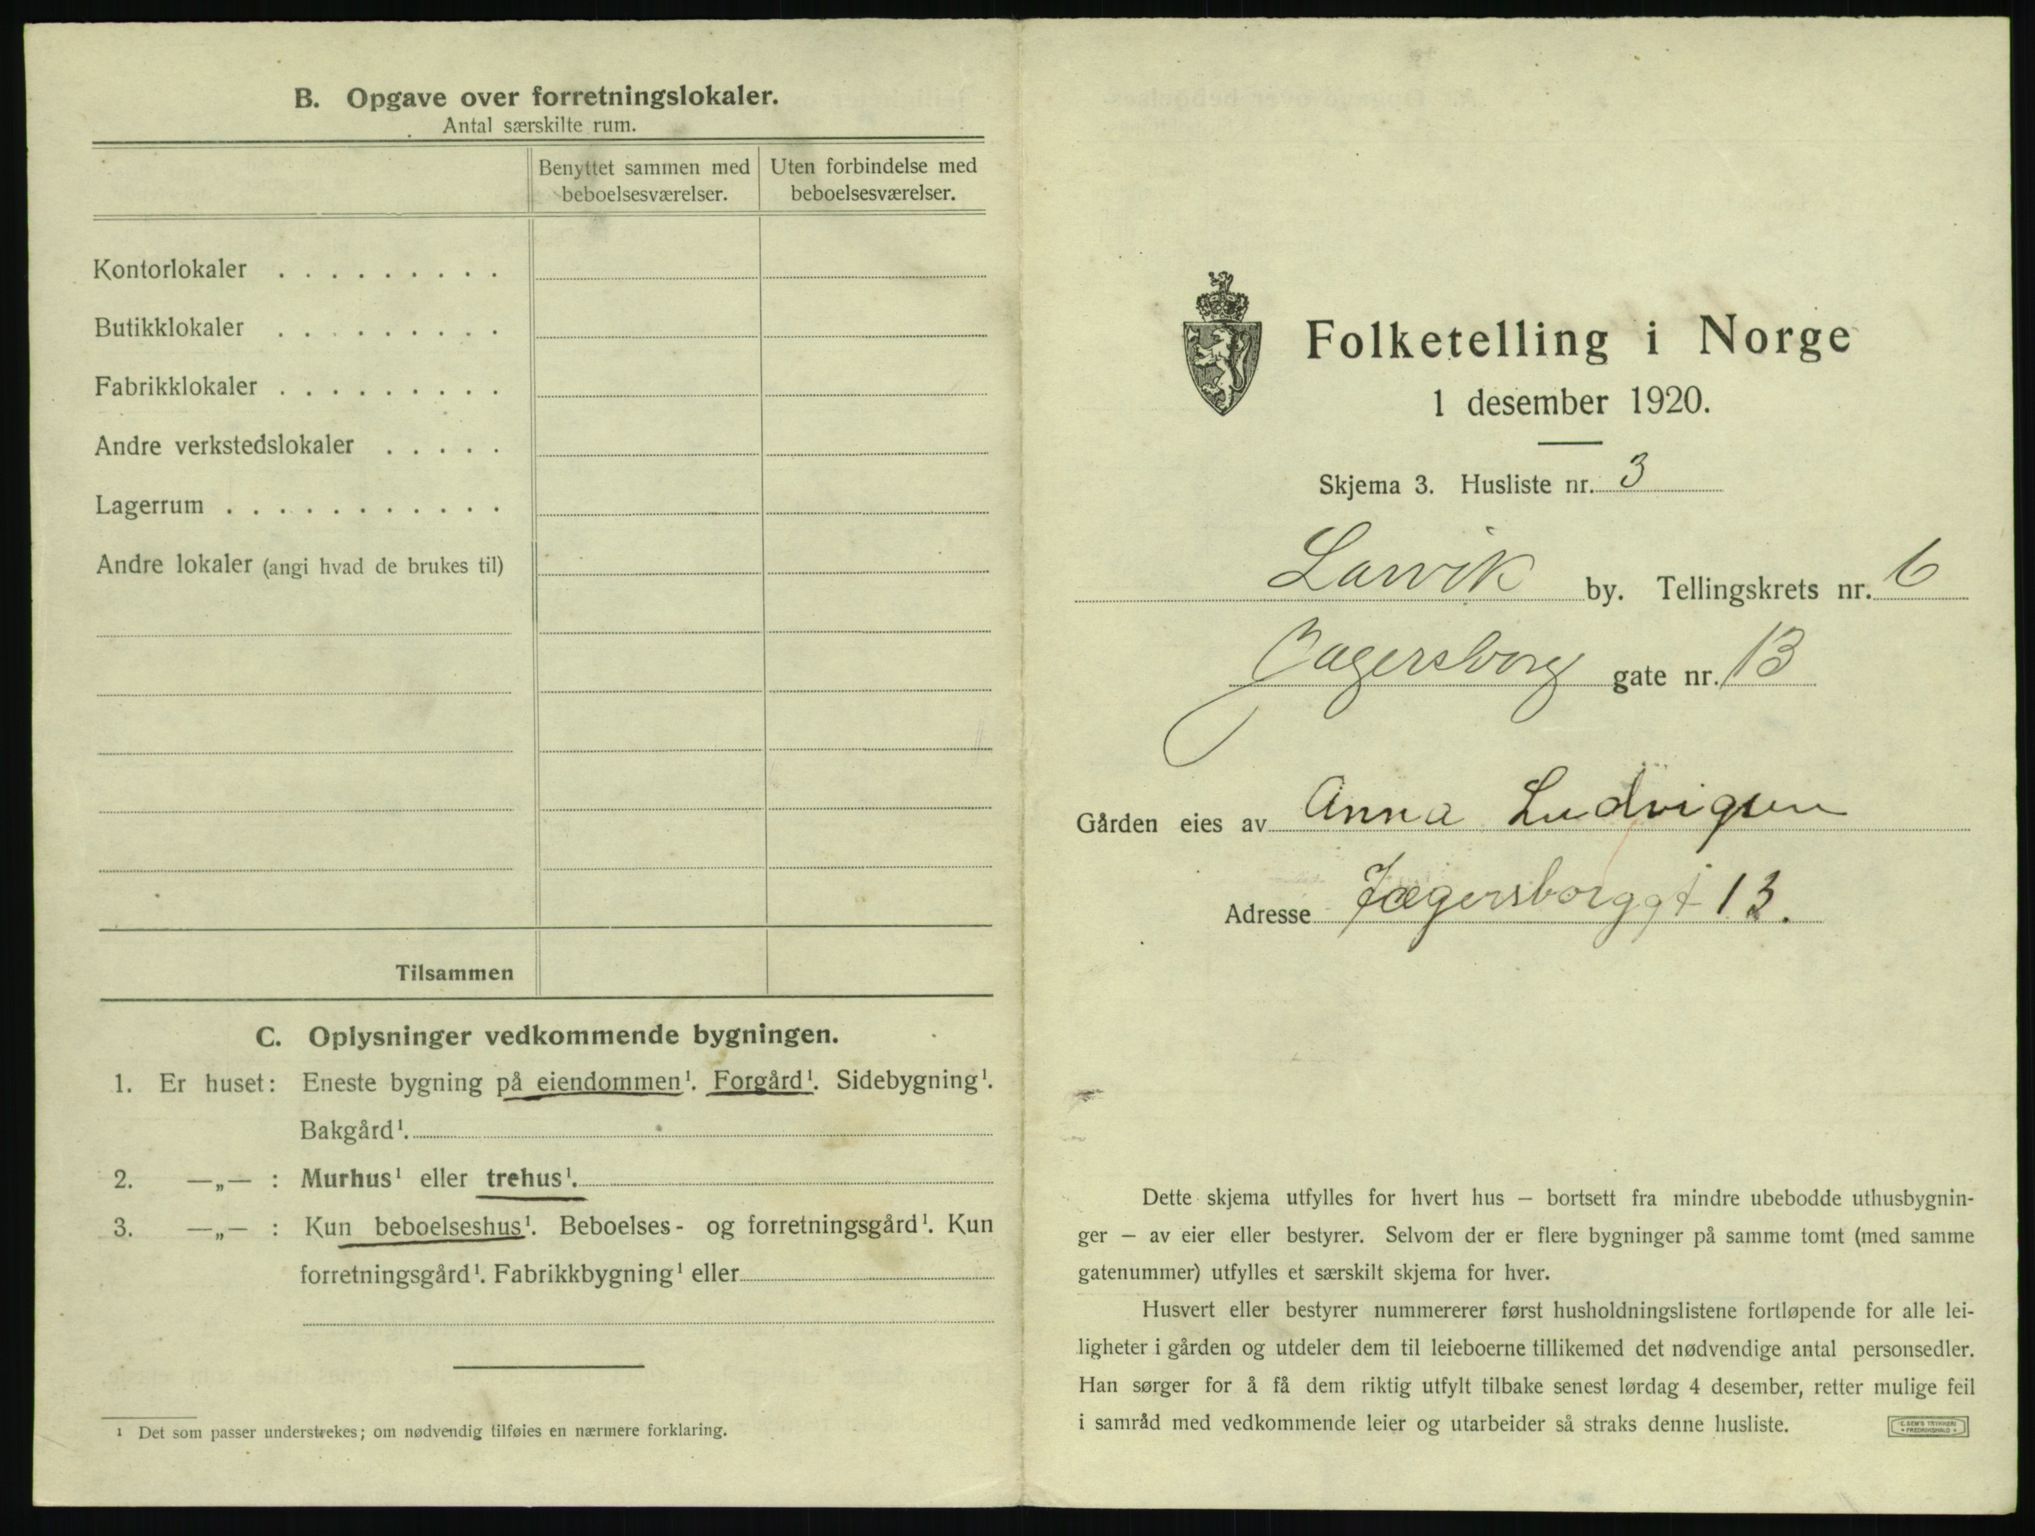 B. Opgave over forretningslokaler.
Antal særskilte rum.
Benyttet sammen med beboelsesværelser.
Uten forbindelse med beboelsesværelser.
Kontorlokaler . . . . . . . . .
Butikklokaler . . . . . . . . .
Fabrikklokaler . . . . . . . . .
Andre verkstedslokaler . . . . .
Lagerrum . . . . . . . . . . .
Andre lokaler (angi hvad de brukes til)
Tilsammen
C. Oplysninger vedkommende bygningen.
1. Er huset: Eneste bygning på eiendommen¹. Forgård¹. Sidebygning¹.
Bakgård¹.
2. —„— : Murhus¹ eller trehus¹.
3. —„— : Kun beboelseshus¹. Beboelses- og forretningsgård¹. Kun
forretningsgård¹. Fabrikkbygning¹ eller
¹ Det som passer understrekes; om nødvendig tilføies en nærmere forklaring.
Folketelling i Norge
1 desember 1920.
Skjema 3. Husliste nr. 3
Larvik by. Tellingskrets nr. 6
Jagersborg gate nr. 13
Gården eies av Anna Ludvigsen
Adresse Jægersborggt 13.
Dette skjema utfylles for hvert hus – bortsett fra mindre ubebodde uthusbygnin-
ger – av eier eller bestyrer. Selvom der er flere bygninger på samme tomt (med samme
gatenummer) utfylles et særskilt skjema for hver.
Husvert eller bestyrer nummererer først husholdningslistene fortløpende for alle lei-
ligheter i gården og utdeler dem til leieboerne tillikemed det nødvendige antal personsedler.
Han sørger for å få dem riktig utfylt tilbake senest lørdag 4 desember, retter mulige feil
i samråd med vedkommende leier og utarbeider så straks denne husliste.
E. SEM'S TRYKKERI
• FREDRIKSHALD •